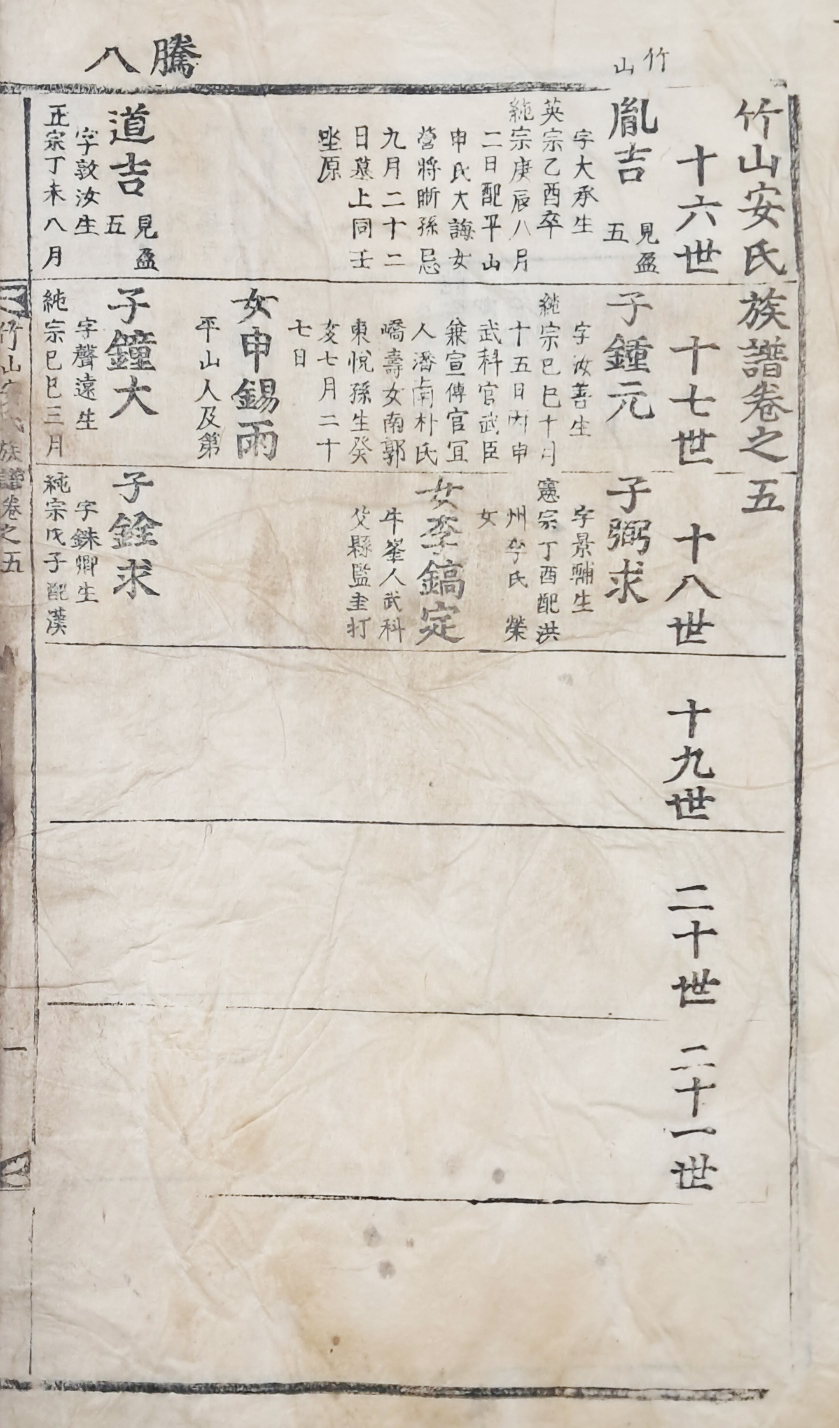 竹山
騰八
竹山安氏族譜卷之五
十六世
胤吉
見盈
五
字大承生
英宗乙酉卒
純宗庚辰八月
二日配平山
申氏大誨女
營將晰孫忌
九月二十二
日墓上同壬
坐原
道吉
見盈
五
字敦汝生
正宗丁未八月
十七世
子鍾元
字汝善生
純宗己巳十月
十五日丙申
武科官武臣
兼宣傳官宜
人潘南朴氏
嶠壽女南郭
東悅孫生癸
亥七月二十
七日
女申錫雨
平山人及第
子鐘大
字聲遠生
純宗己巳三月
十八世
子弼求
字景輔生
憲宗丁酉配洪
州李氏 榮
女
女李鎬定
牛峯人武科
父縣監圭打
子銓求
字銖卿生
純宗戊子配漢
十九世
二十世
二十一世
竹山安氏族譜卷之五
一